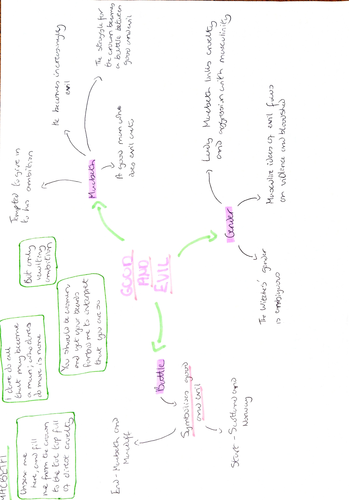 MACBETH
Unsex me
here, and fill
me from the crown
to the toe top full
of direct cruelty
I dare do all
that may become
a man; who dares
do more is none
But only
vaulting
ambition
You should be women
and yet your beards
forbid me to interpret
that you are so
Tempted to give in
to his ambition
He becomes increasingly
evil
The struggle for
the crown becomes
a battle between
good and evil
Macbeth
A good man who
does evil acts
GOOD
AND
EVIL
Battle
Symbolises good
and evil
End - Macbeth and
Macduff
Start - Scotland and
Norway
Gender
Lady Macbeth links cruelty
and aggression with masculinity
Masculine ideas of evil focus
on violence and bloodshed
The Witches' gender
is ambiguous